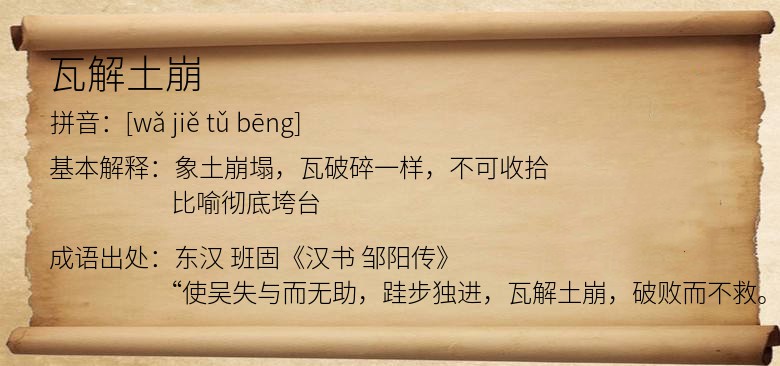 瓦解土崩
拼音：[wǎ jiě tǔ bēng]
基本解释：象土崩塌，瓦破碎一样，不可收拾
比喻彻底垮台
成语出处：东汉 班固《汉书 邹阳传》
“使吴失与而无助，跬步独进，瓦解土崩，破败而不救。